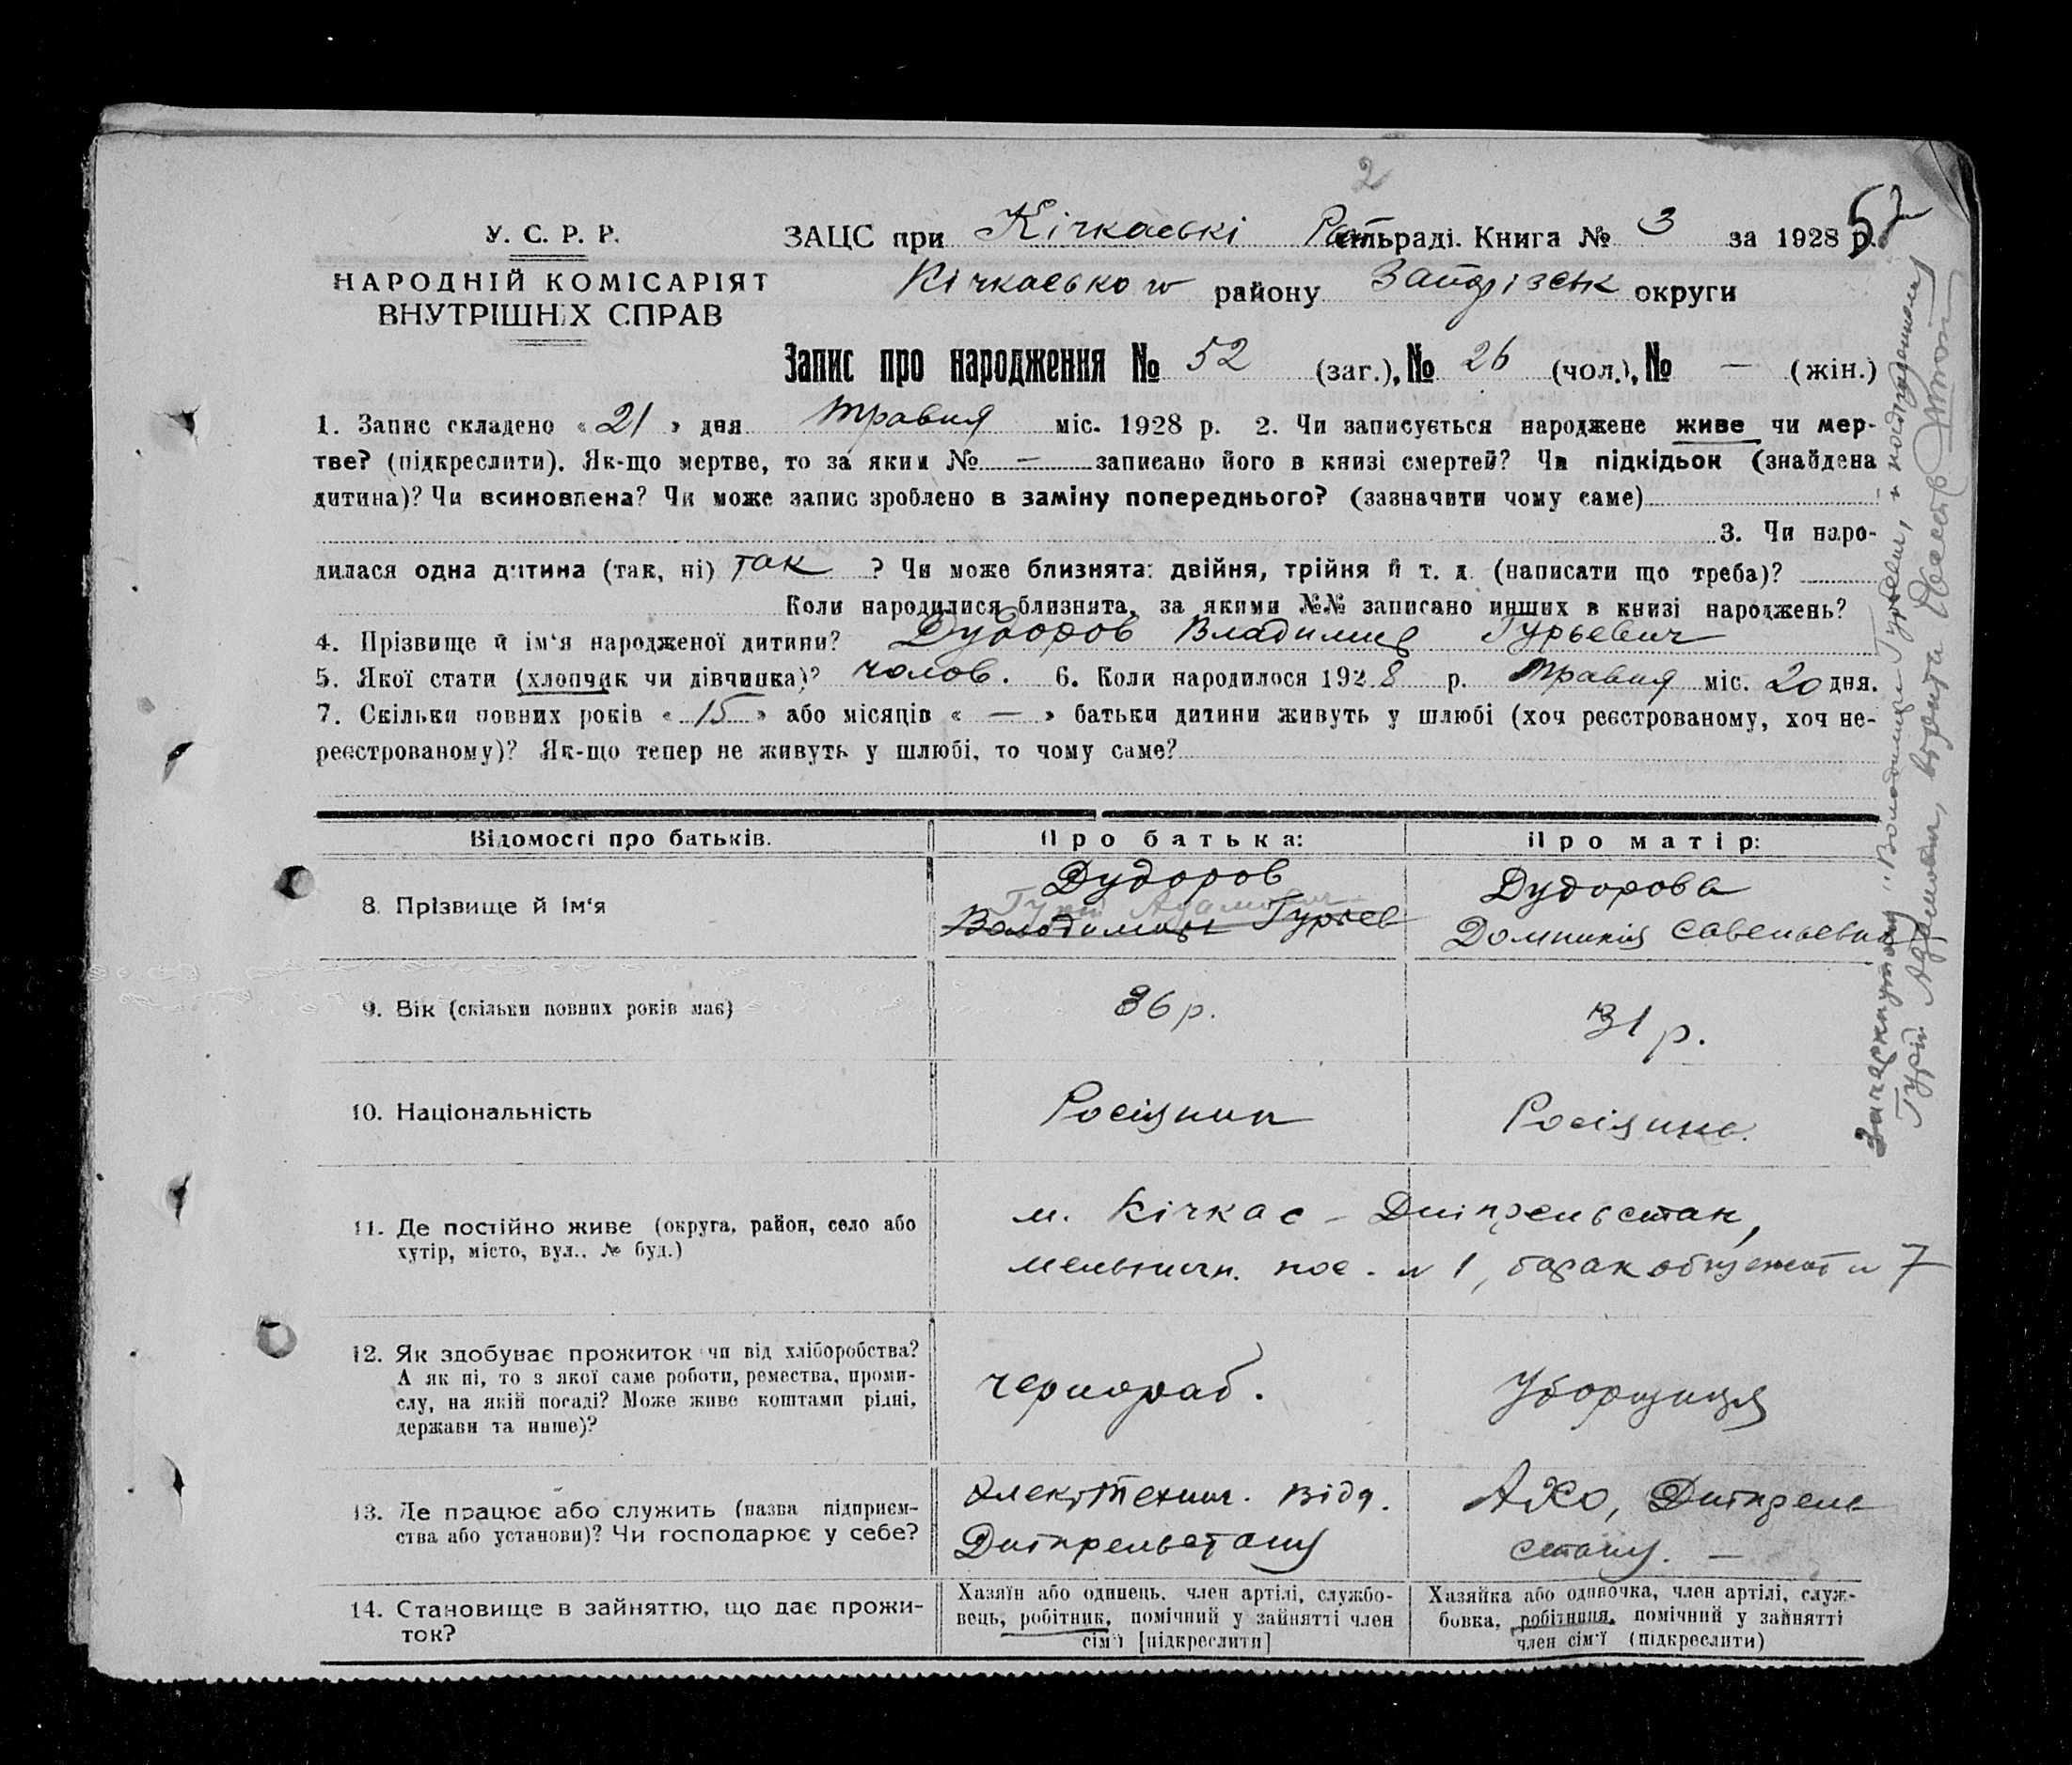 2
52
У. С. Р. Р.
НАРОДНІЙ КОМІСАРІЯТ
ВНУТРІШНІХ СПРАВ
ЗАЦС при Кічкаські сільраді. Книга № 3 за 1928 р.
Кічкаського району Запорізськ округи
Запис про народження № 52 (заг.), № 26 (чол.), № — (жін.)
1. Запис складено «21» дня травня міс. 1928 р. 2. Чи записується народжене живе чи мер-
тве? (підкреслити). Як-що мертве, то за яким № — записано його в книзі смертей? Чи підкідьок (знайдена
дитина)? Чи всиновлена? Чи може запис зроблено в заміну попереднього? (зазначити чому саме)
3. Чи наро-
дилася одна дитина (так, ні) так ? Чи може близнята: двійня, трійня й т. д. (написати що треба)?
Коли народилися близнята, за якими №№ записано инших в книзі народжень?
4. Прізвище й ім'я народженої дитини? Дудоров Владимир Гурьевич
5. Якої стати (хлопчик чи дівчинка)? чолов. 6. Коли народилося 1928 р. травня міс. 20 дня.
7. Скільки повних років «15» або місяців « — » батьки дитини живуть у шлюбі (хоч реєстрованому, хоч не-
реєстрованому)? Як-що тепер не живуть у шлюбі, то чому саме?
Відомості про батьків. Про батька: Про матір:
8. Прізвище й ім'я
Дудоров
Гурій Адамович
Володимир Гурьев
Дудорова
Домникія Савельевна
9. Вік (скільки повних років має) 36 р. 31 р.
10. Національність Росіянин Росіянка
11. Де постійно живе (округа, район, село або
хутір, місто, вул., № буд.)
м. Кічкас – Дніпрельстан,
пос. № 1, барак № 7
12. Як здобуває прожиток чи від хліборобства?
А як ні, то з якої саме роботи, ремества, проми-
слу, на якій посаді? Може живе коштами рідні,
держави та инше)?
чернораб.
Уборщиця
13. Де працює або служить (назва підприєм-
ства або установи)? Чи господарює у себе?
Електротехнич. Відд.
Дніпрельстану
АХО, Дніпрель
стану. —
14. Становище в зайняттю, що дає прожи-
ток?
Хазяїн або одинець, член артілі, службо-
вець, робітник, помічний у зайнятті член
сім'ї [підкреслити]
Хазяйка або одиночка, член артілі, служ-
бовка, робітниця, помічний у зайнятті
член сім'ї (підкреслити)
Зачеркнутому "Володимир Гурьевич"
Гурій Адамович, вірити